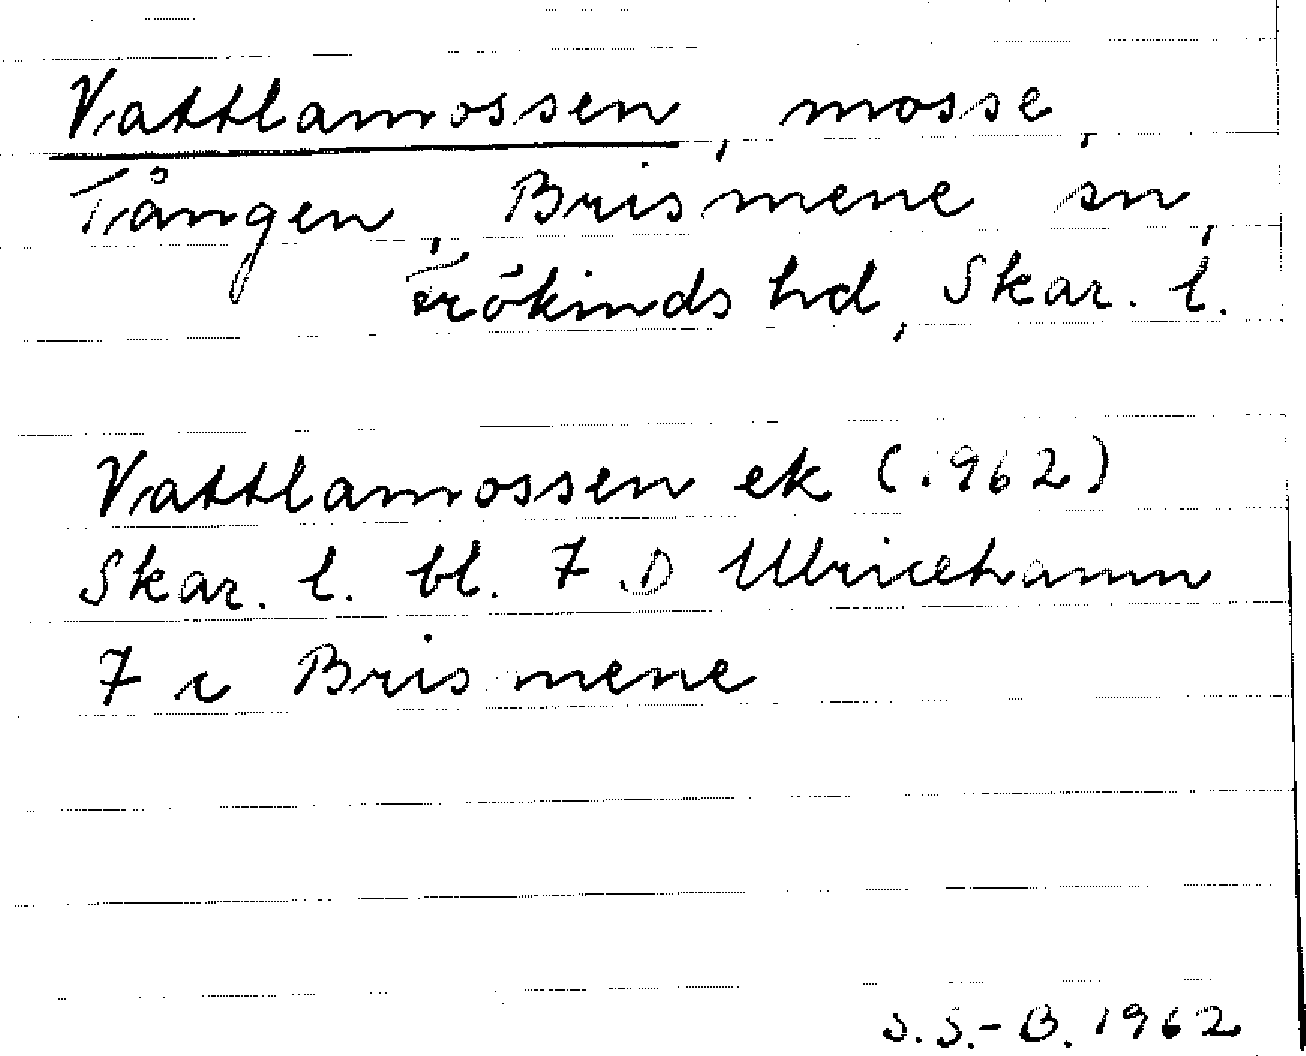 Vattlamossen, mosse,
Tången, Brismene sn,
Frökinds hd, Skar. l.
Vattlamossen ek (1962)
Skar. l. bl. 7 D Ulricehamn
7 c Brismene
S.S.-B. 1962